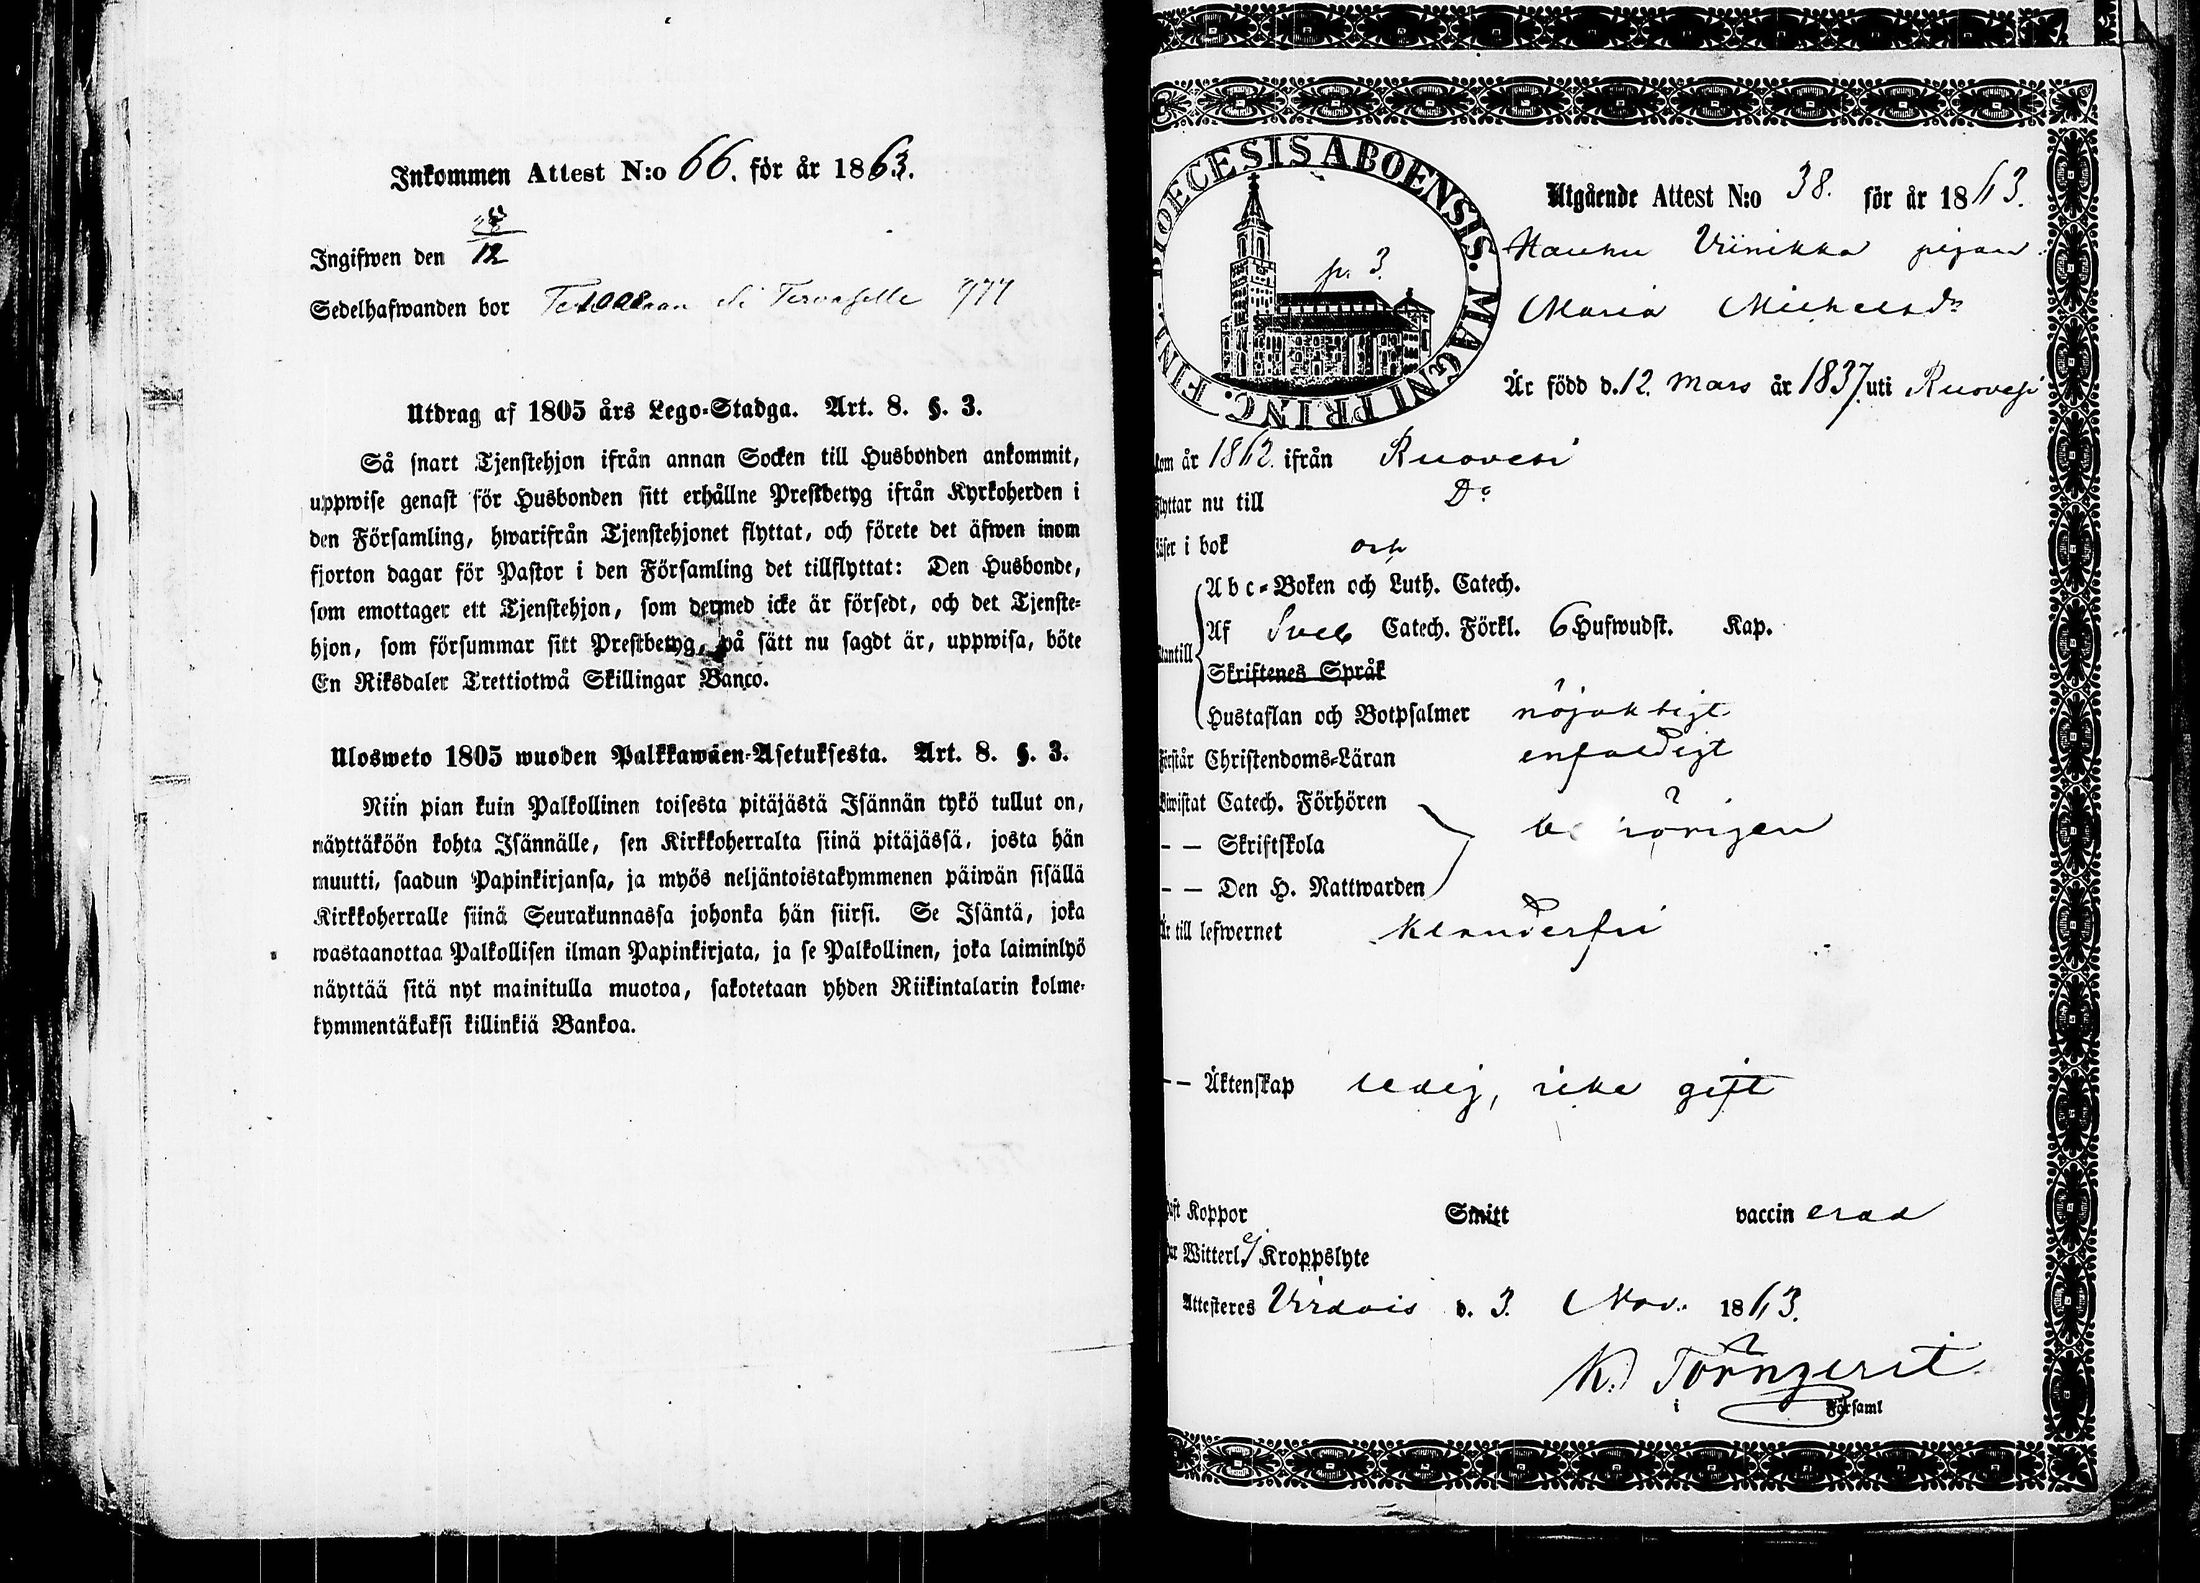 Inkommen Attest N:o 66. för år 1863.
Ingifwen den 28/12
Sedelhafwanden bor
Utdrag af 1805 års Lego-Stadga. Art. 8. §. 3.
Så snart Tjenstehjon ifrån annan Socken till Husbonden ankommit,
uppwise genast för Husbonden sitt erhållne Prestbetyg ifrån Kyrkoherden i
den Församling, hwarifrån Tjenstehjonet flyttat, och förete det äfwen inom
fjorton dagar för Pastor i den Församling det tillflyttat: Den Husbonde,
som emottager ett Tjenstehjon, som dermed icke är försedt, och det Tjenste-
hjon, som försummar sitt Prestbetyg, på sätt nu sagdt är, uppwisa, böte
En Riksdaler Trettiotwå Skillingar Banco.
Ulosweto 1805 wuoden Palkkawäen-Asetuksesta. Art. 8. §. 3.
Niin pian kuin Palkollinen toisesta pitäjästä Isännän tykö tullut on,
näyttäköön kohta Isännälle, sen Kirkkoherralta siinä pitäjässä, josta hän
muutti, saadun Papinkirjansa, ja myös neljäntoistakymmenen päiwän sisällä
Kirkkoherralle siinä Seurakunnassa johonka hän siirsi. Se Isäntä, joka
wastaanottaa Palkollisen ilman Papinkirjata, ja se Palkollinen, joka laiminlyö
näyttää sitä nyt mainitulla muotoa, sakotetaan yhden Riikintalarin kolme-
kymmentäkaksi killinkiä Bankoa.
DIOECESIS ABOENSIS. MAGNI PRINC. FINL.
p. 3.
Utgående Attest N:o 38. för år 1863.
Hauhu Viinikka pigan
Maria Michelsdr
Är född d. 12. Mars år 1837. uti Ruovesi
kom år 1862. ifrån Ruovesi
Flyttar nu till Do
Läser i bok och
Abc-Boken och Luth. Catech.
Af Sveb Catech. Förkl. 6 Hufwudst. Kap.
utantill
Skriftenes Språk
Hustaflan och Botpsalmer nöjaktigt
Förstår Christendoms-Läran enfaldigt
Biwistat Catech. Förhören
— — Skriftskola behörigen
— — Den H. Nattwarden
Är till lefwernet klanderfri
— — Äktenskap ledig, icke gift
Haft Koppor Smitt vaccinerad
Har Witterl. ej Kroppslyte
Attesteres Virdois d. 3. Nov. 1863.
K. Törnqvist
i Församl